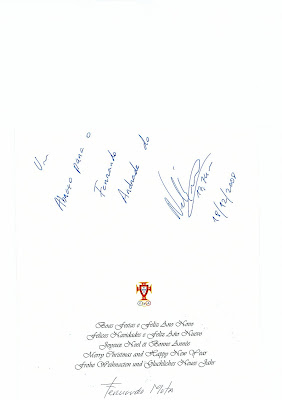 Um
Abraço para o
Fernando
Andrade do
17,74m
18/12/2008
Boas Festas e Feliz Ano Novo
Felices Navidades e Feliz Año Nuevo
Joyeux Noel et Bonne Année
Merry Christmas and Happy New Year
Frohe Weihnacten und Glückliches Neues Jahr
Fernando Mota